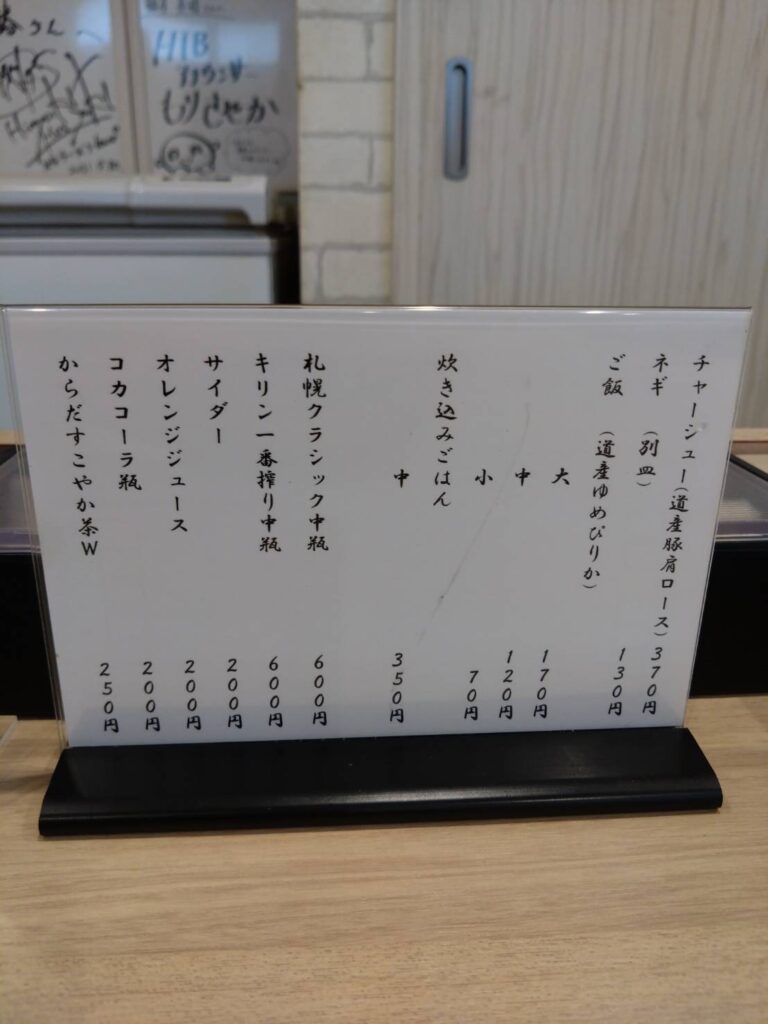 HTB
アナウンサー
チャーシュー(道産豚肩ロース) 370円
ネギ (別皿) 130円
ご飯 (道産ゆめぴりか)
大 170円
中 120円
小 70円
炊き込みごはん
中 350円
札幌クラシック中瓶 600円
キリン一番搾り中瓶 600円
サイダー 200円
オレンジジュース 200円
コカコーラ瓶 200円
からだすこやか茶W 250円